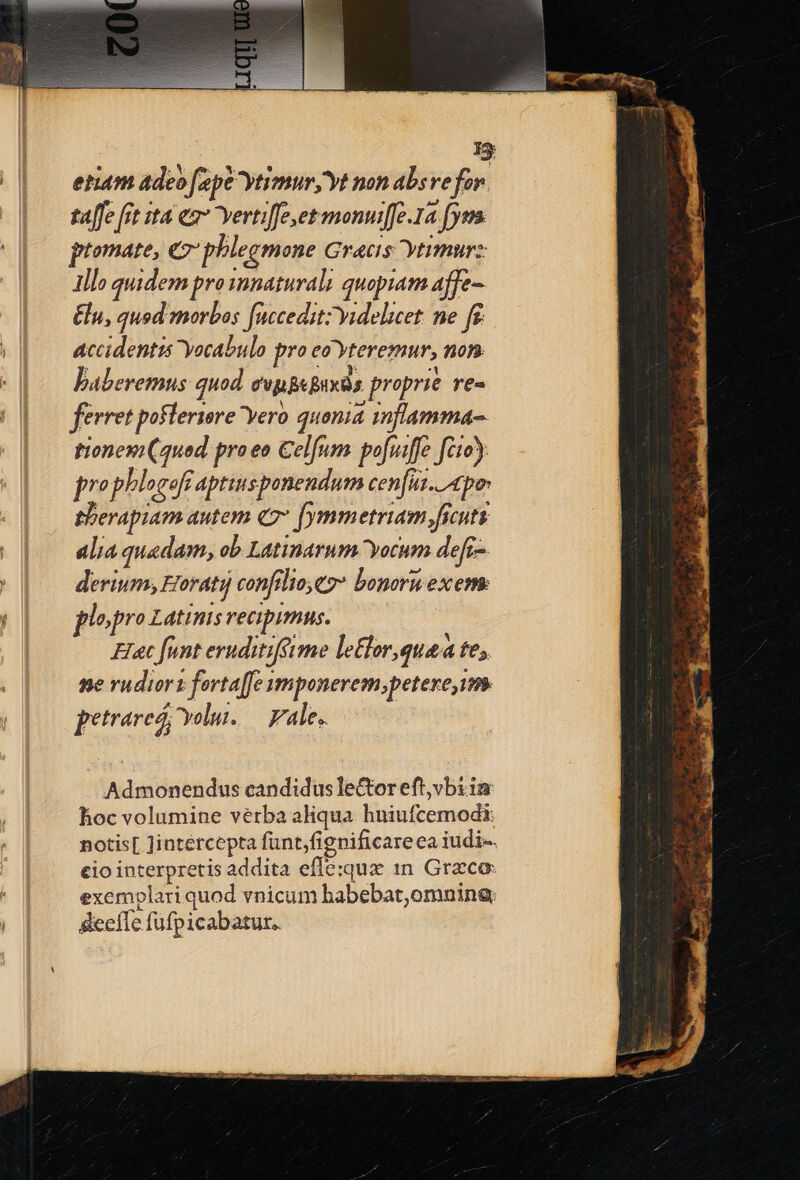 002
em libri
etiam adeò sæpè vtimur, vt non abs re for
tasse sit ita & vertisse, et monuisse. Iã sym
ptomate, & phlegmone Græcis vtimur:
Illo quidem pro innaturali quopiam affe-
ctu, quod morbos succedit: videlicet ne si
accidentis vocabulo pro eo vteremur, non
haberemus quod συμβεβηκὸς propriè re-
ferret posteriore verò quoniã inflamma-
tionem (quod pro eo Celsum posuisse scio)
pro phlogosi aptius ponendum censui. Apo
therapiam autem & symmetriam, sicuti
alia quædam, ob Latinarum vocum desi-
derium, Horatij consilio, & bonorũ exem
plo, pro Latinis recipimus.
Hæc sunt eruditissime lector, quæ à te,
ne rudiori fortasse imponerem, petere, im
petrareq́; volui. Vale.
Admonendus candidus lector est, vbi in
hoc volumine verba aliqua huiuscemodi
notis [ ] intercepta sunt, significare ea iudi-
cio interpretis addita esse: quæ in Græco
exemplari quod vnicum habebat, omnino
deesse suspicabatur.